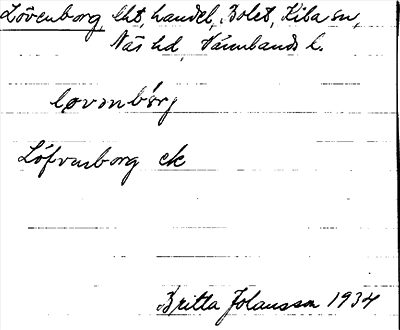 Lövenborg, lht, handel, Bolet, Kila sn,
Näs hd, Värmlands l.
løvenbórj
Löfvenborg ek
Britta Johansson 1934